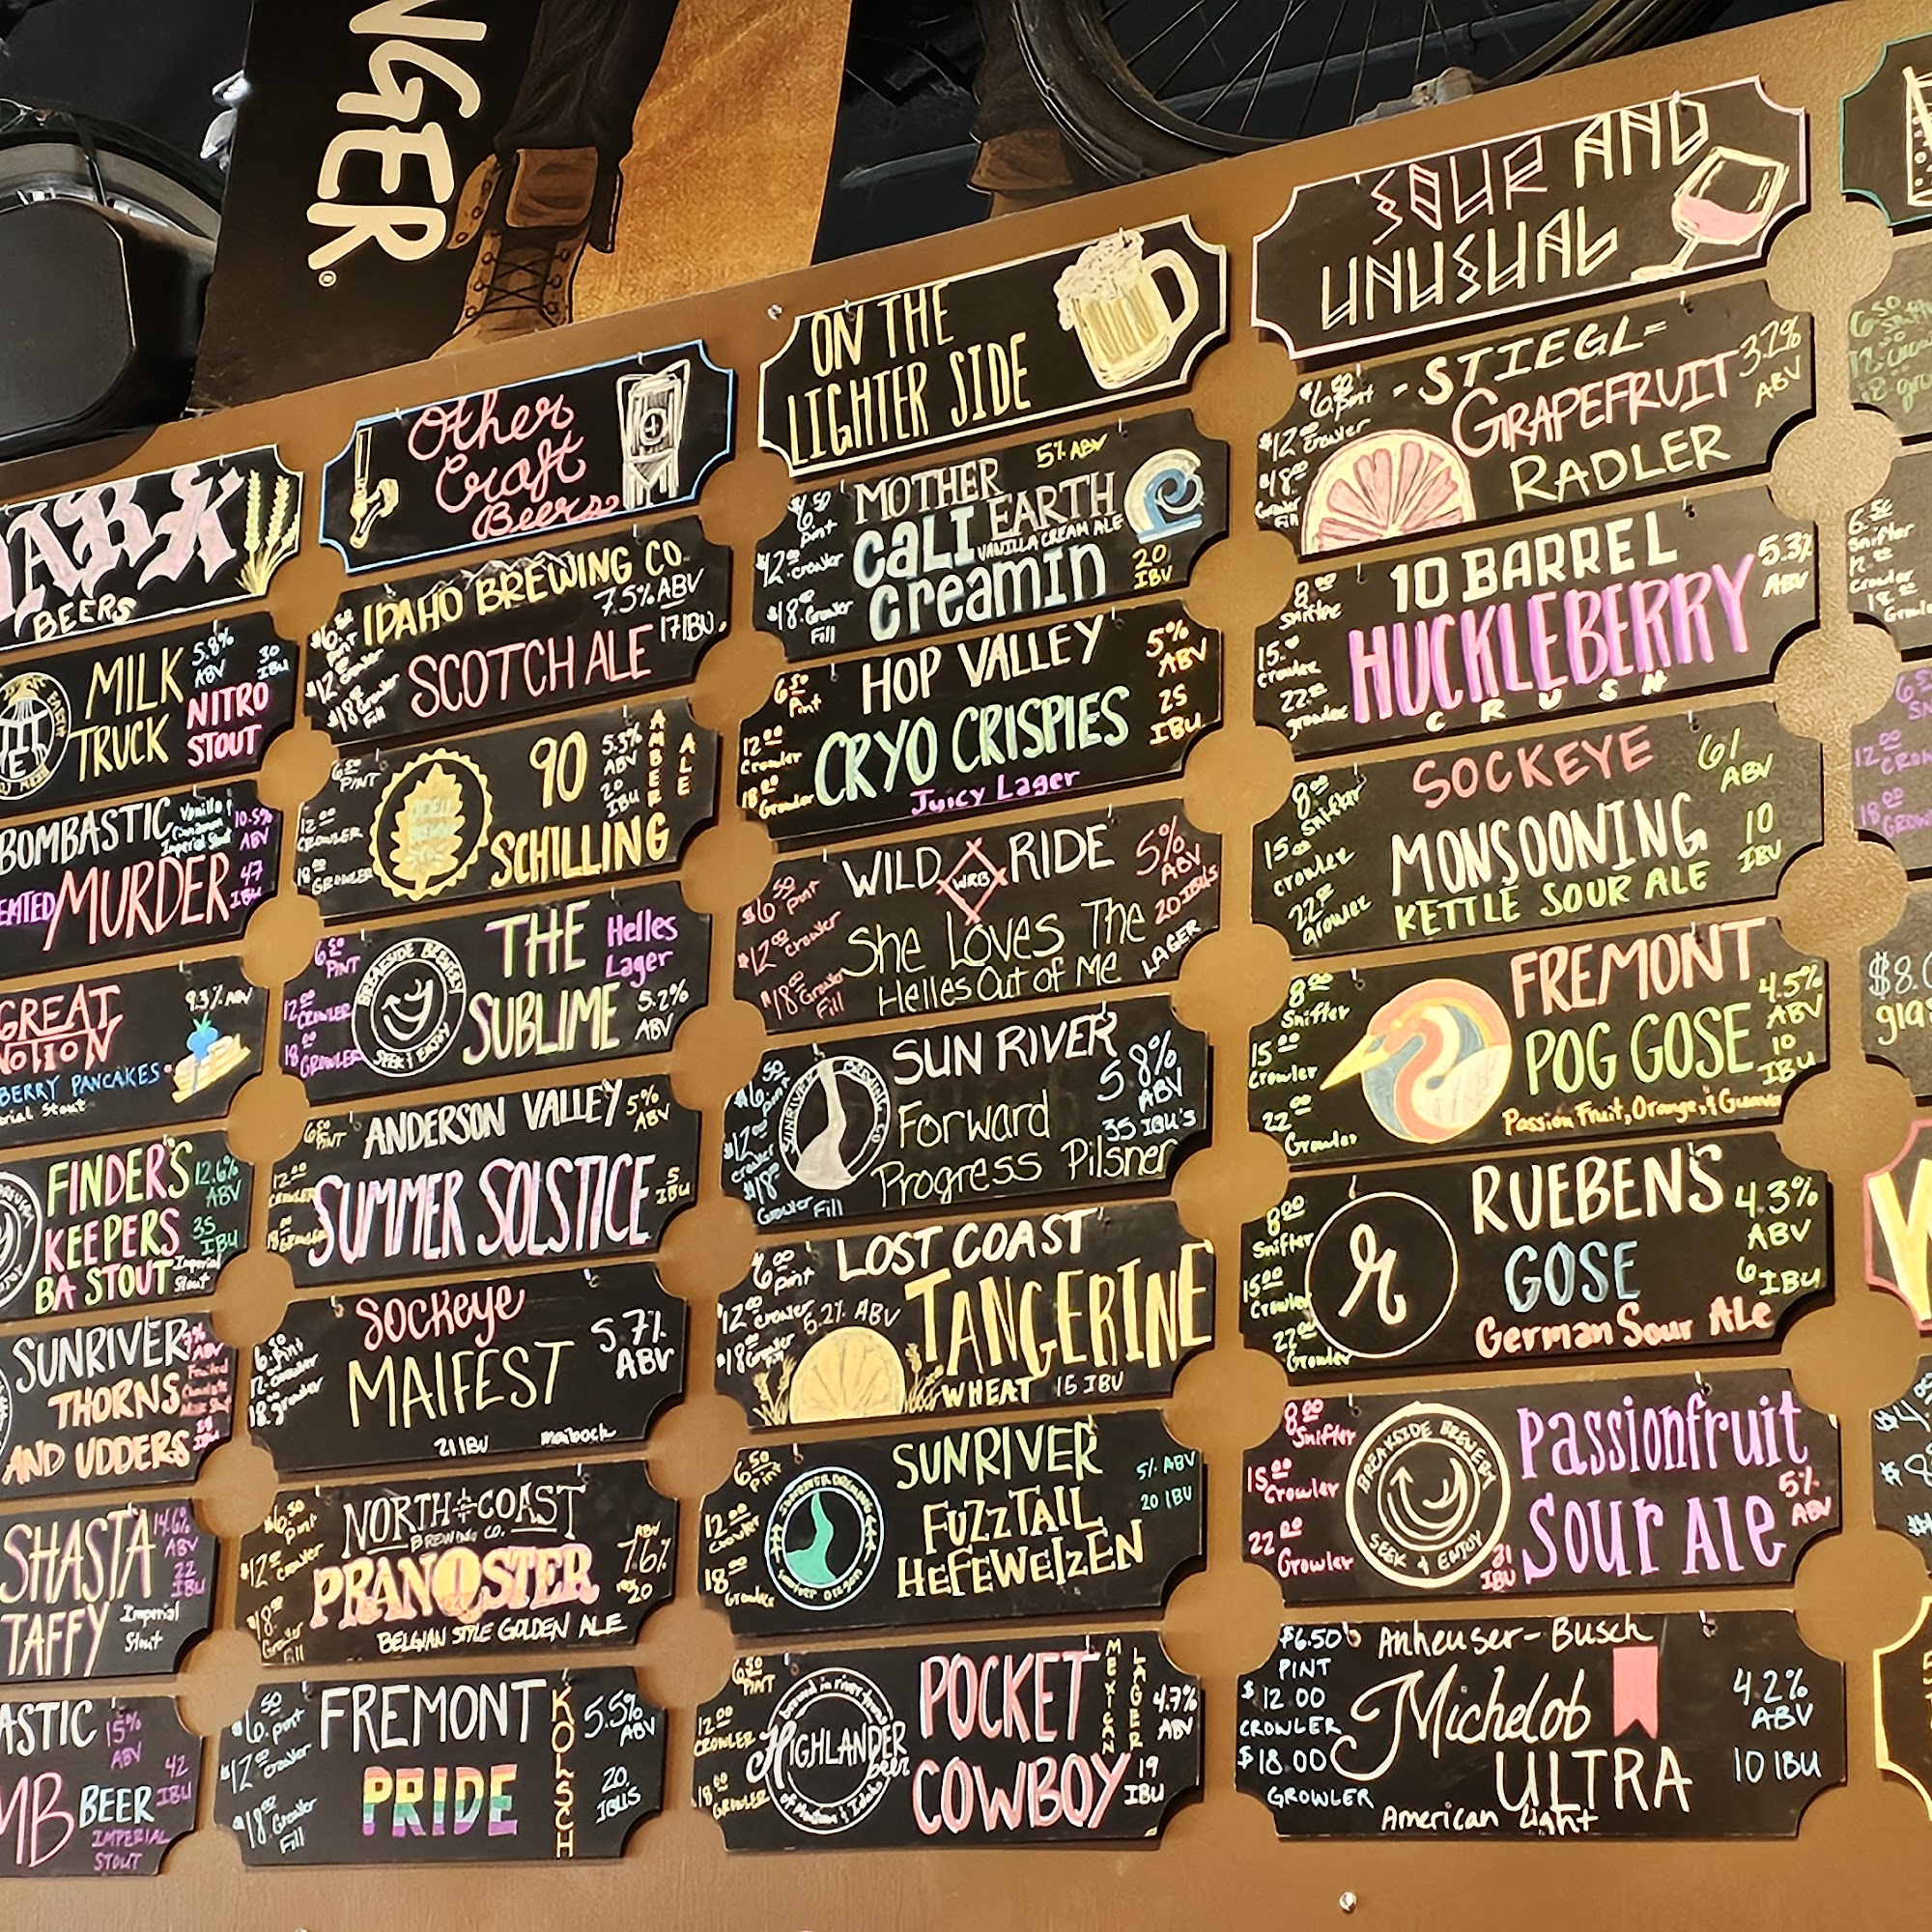 NGER®
DARK
BEERS
MILK
TRUCK
5.8%
ABV
30
IBU
NITRO
STOUT
BOMBASTIC
Vanilla
Cinnamon
Imperial Stout
10.5%
ABV
MURDER
47
IBU
GREAT
NOTION
9.3% ABV
BERRY PANCAKES
Stout
FINDER'S
KEEPERS
BA STOUT
12.6%
ABV
35
IBU
Imperial
Stout
SUNRIVER
THORNS
AND UDDERS
7%
ABV
SHASTA
TAFFY
14.6%
ABV
22
IBU
Imperial
Stout
ASTIC
15%
ABV
MB BEER
42
IBU
IMPERIAL
STOUT
Other
Craft
Beers
$6.50
Pint
$12
Crowler
$18
Growler
Fill
IDAHO BREWING CO.
7.5% ABV
SCOTCH ALE 17 IBU.
6.50
PINT
12.00
CROWLER
18.00
GROWLER
90
SCHILLING
5.5%
ABV
20
IBU
AMBER
ALE
6.50
PINT
12.00
CROWLER
18.00
GROWLER
BREAKSIDE BREWERY
SEEK & ENJOY
THE
SUBLIME
Helles
Lager
5.2%
ABV
6.50
PINT
12.00
CROWLER
18.00
GROWLER
ANDERSON VALLEY
SUMMER SOLSTICE
5%
ABV
5
IBU
6.50 Pint
12. crowler
18. growler
Sockeye
MAIFEST
5.7%
ABV
21 IBU
maibock
$6.50
Pint
$12.00
Crowler
$18.00
Growler
Fill
NORTH COAST
BREWING CO.
PRANQSTER
BELGIAN STYLE GOLDEN ALE
ABV
7.6%
20
$6.50
Pint
$12.00
Crowler
$18.00
Growler
Fill
FREMONT
PRIDE
KOLSCH
5.5%
ABV
20
IBUS
ON THE
LIGHTER SIDE
$6.50
Pint
$12.00
crowler
$18.00
Growler
Fill
MOTHER
EARTH
VANILLA CREAM ALE
CALI
Creamin
5% ABV
20
IBU
6.50
Pint
12.00
Crowler
18.00
Growler
HOP VALLEY
CRYO CRISPIES
Juicy Lager
5%
ABV
25
IBU
$6.50
Pint
$12.00
Crowler
$18.00
Growler
Fill
WILD RIDE
WRB
She Loves The
Helles Out of Me
5%
ABV
20 IBUs
LAGER
$6.50
Pint
$12.00
Crowler
$18.00
Growler Fill
SUNRIVER BREWING CO
SUN RIVER
Forward
Progress Pilsner
5.8%
ABV
35 IBU's
6.00
Pint
$12.00
crowler
$18.00
Growler
Fill
LOST COAST
5.2% ABV
TANGERINE
WHEAT 15 IBU
6.50
Pint
12.00
Crowler
18.00
Growler
SUNRIVER
FUZZTAIL
HEFEWEIZEN
5% ABV
20 IBU
6.50
PINT
12.00
CROWLER
18.00
GROWLER
HIGHLANDER
beer
POCKET
COWBOY
MEXICAN
LAGER
4.7%
ABV
19
IBU
SOUR AND
UNUSUAL
$6.50
Pint
$12.00
Crowler
$18.00
Growler
Fill
-STIEGL-
GRAPEFRUIT
RADLER
3.2%
ABV
8.00
Snifter
15.00
Crowler
22.00
growler
10 BARREL
HUCKLEBERRY
CRUSH
5.3%
ABV
8.00
Snifter
15.00
crowler
22.00
growler
SOCKEYE
MONSOONING
KETTLE SOUR ALE
6%
ABV
10
IBU
8.00
Snifter
15.00
Crowler
22.00
Growler
FREMONT
POG GOSE
Passion Fruit, Orange, & Guava
4.5%
ABV
10
IBU
8.00
Snifter
15.00
Crowler
22.00
Growler
r
RUEBENS
GOSE
German Sour Ale
4.3%
ABV
6 IBU
8.00
Snifter
15.00
Crowler
22.00
Growler
BREAKSIDE BREWERY
SEEK & ENJOY
31
IBU
Passionfruit
Sour Ale
5%
ABV
$6.50
PINT
$12.00
CROWLER
$18.00
GROWLER
Anheuser-Busch
Michelob
ULTRA
American Light
4.2%
ABV
10 IBU
6.50
Snifter
12.00
Crowler
18.00
12.00
18.00
$8.